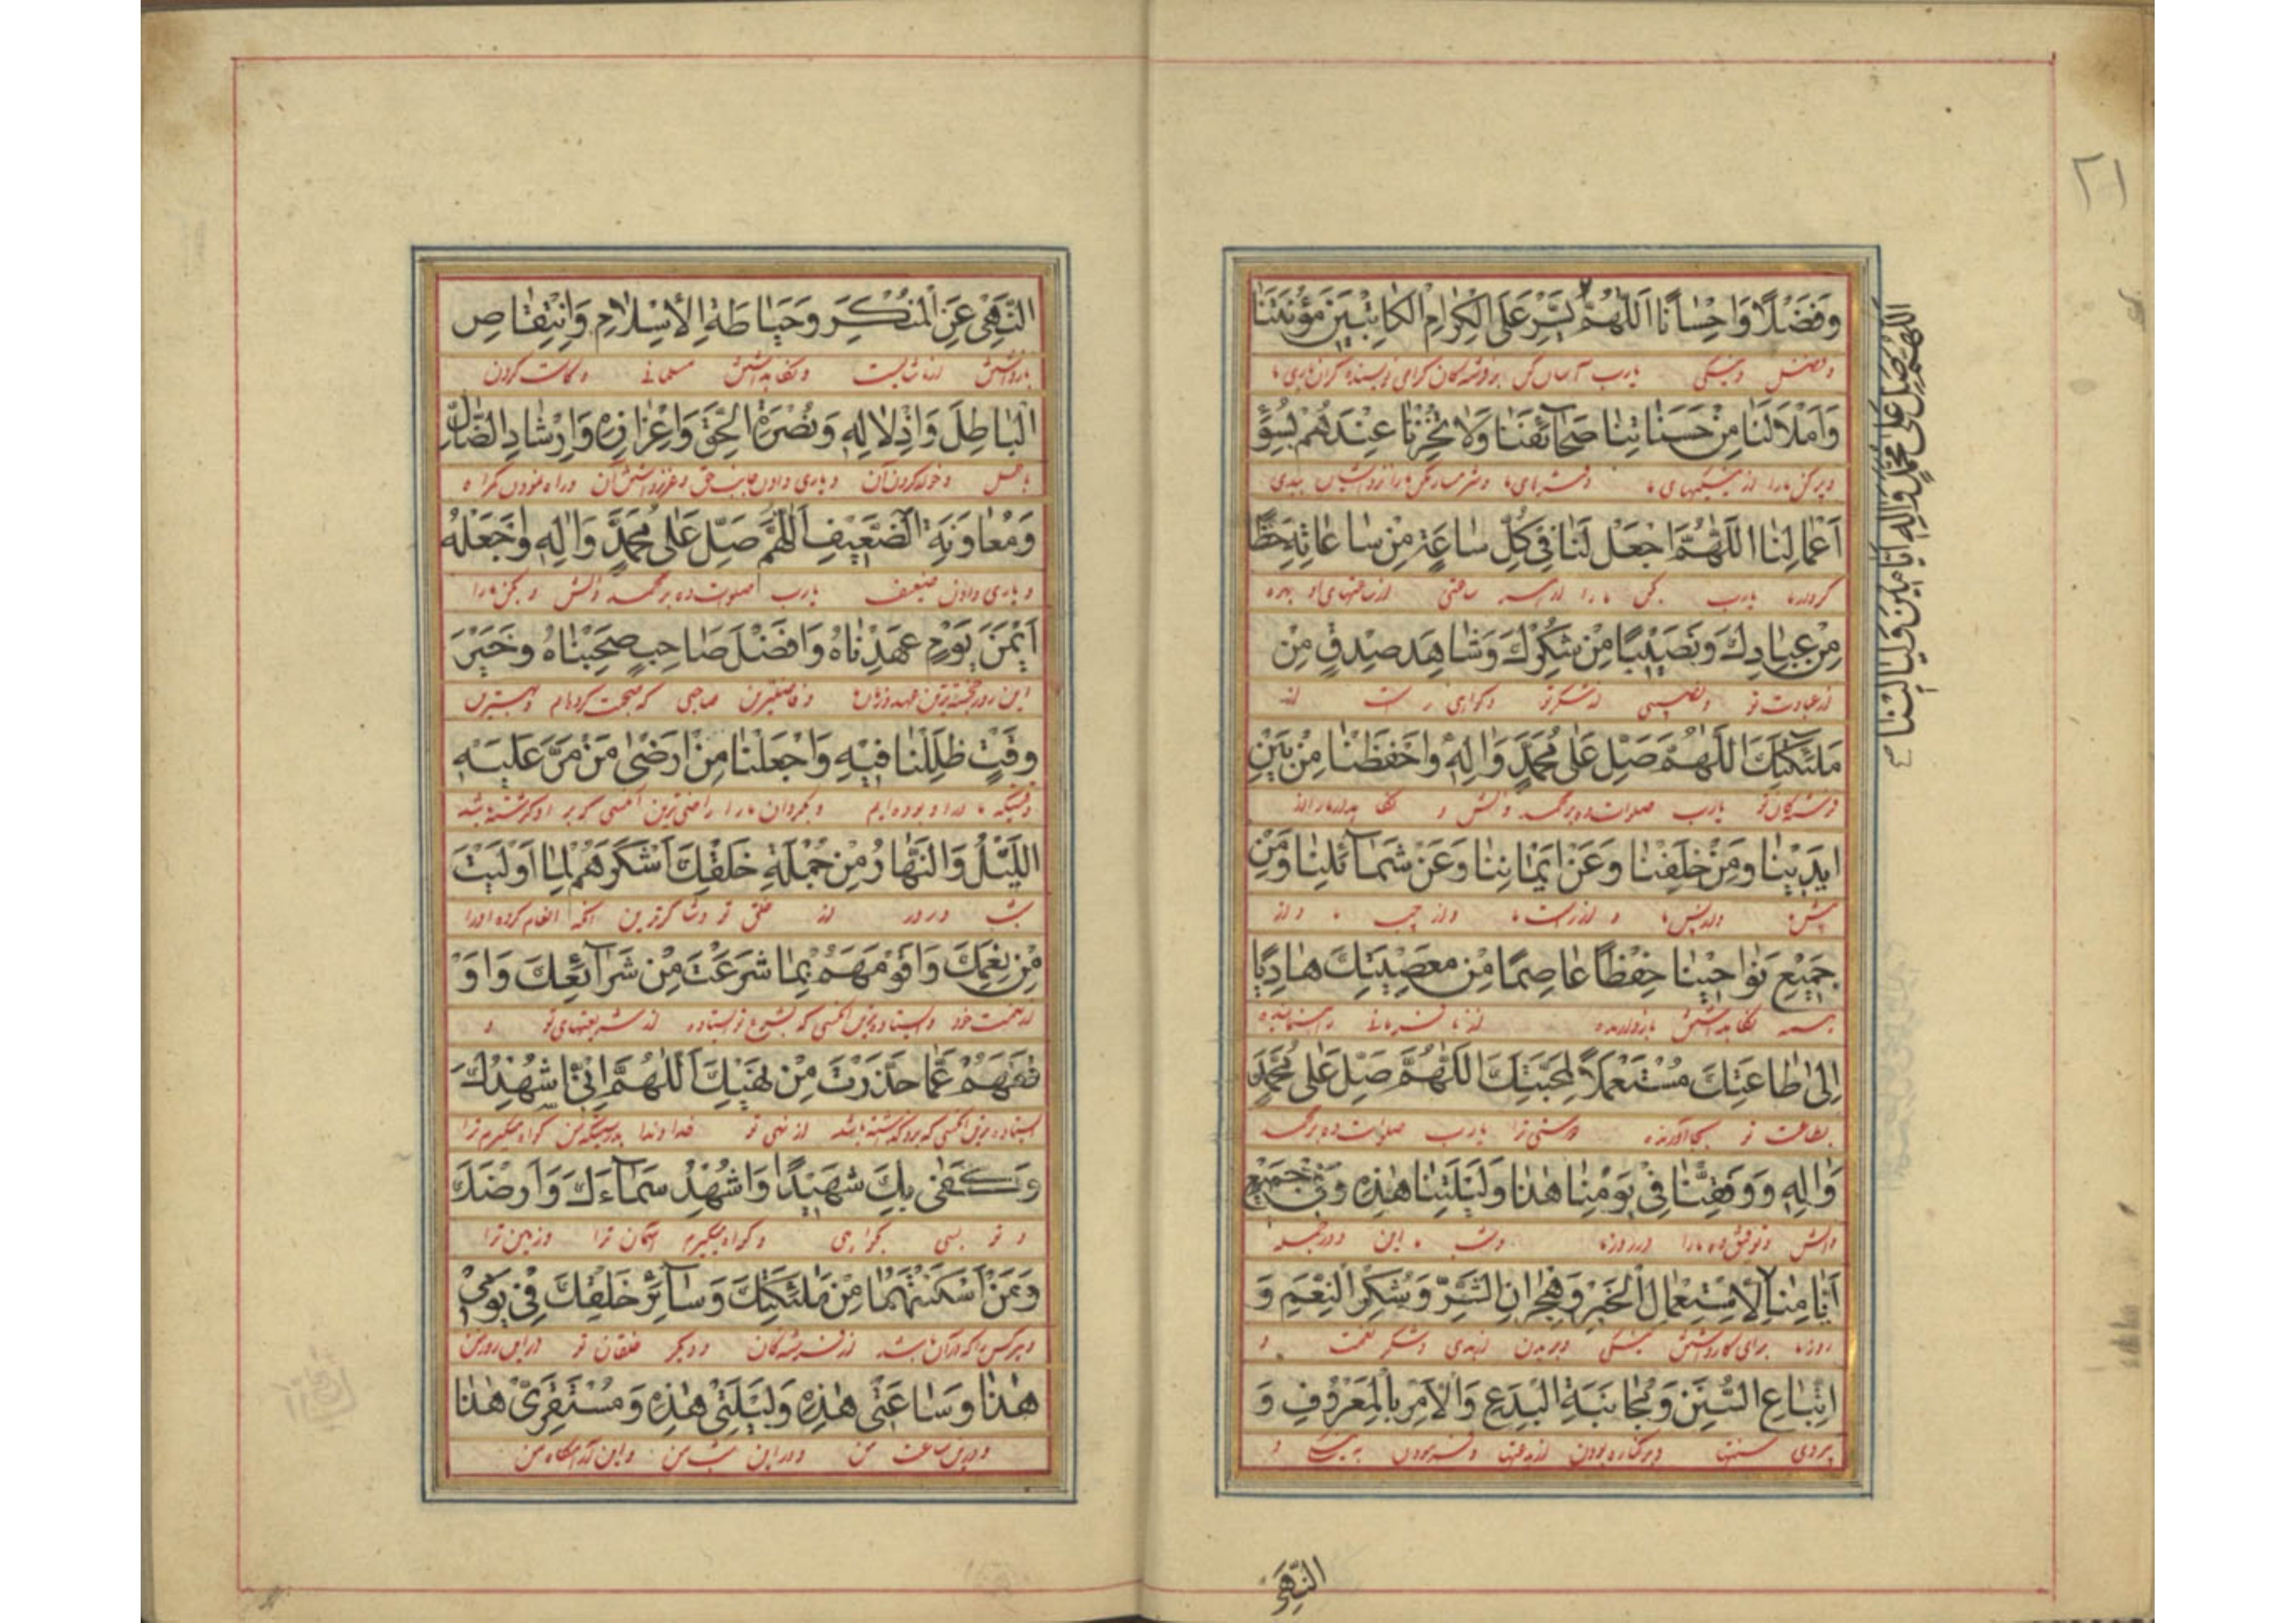 ٢١
وَفَضْلًا وَاِحْسَانًا اَللّٰهُمَّ يَسِّرْ عَلَى الْكِرَامِ الْكَاتِبِيْنَ مَؤُنَتَنَا
و فضل و نیکی یارب آسان کن بر فرشته‌گان گرامی نویسنده گران باری ما
وَامْلَأْ لَنَا مِنْ حَسَنَاتِنَا صَحَآئِفَنَا وَلَا تُخْزِنَا عِنْدَهُمْ بِسُوْٓءِ
و پر کن ما را از نیکیهای ما
اَعْمَالِنَا اَللّٰهُمَّ اجْعَلْ لَنَا فِيْ كُلِّ سَاعَةٍ مِنْ سَاعَاتِهِ حَظًّا
کردار ما یارب بکن ما را از هر ساعتی از ساعتهای او بهره
مِنْ عِبَادِكَ وَنَصِيْبًا مِنْ شُكْرِكَ وَشَاهِدَ صِدْقٍ مِنْ
از عبادت تو و نصیبی از شکر تو و گواهی راست از
مَلٰٓئِكَتِكَ اَللّٰهُمَّ صَلِّ عَلٰى مُحَمَّدٍ وَاٰلِهِ وَاحْفَظْنَا مِنْ بَيْنِ
فرشته‌گان تو یارب صلوات ده بر محمد و آلش و نگاه بدار ما را از
اَيْدِيْنَا وَمِنْ خَلْفِنَا وَعَنْ اَيْمَانِنَا وَعَنْ شَمَآئِلِنَا وَمِنْ
پیش ما و از پس ما و از راست ما و از چپ ما و از
جَمِيْعِ نَوَاحِيْنَا حِفْظًا عَاصِمًا مِنْ مَعْصِيَتِكَ هَادِيًا
همه نگاهداشتن بازدارنده از نافرمانی راه نماینده
اِلٰى طَاعَتِكَ مُسْتَعْمِلًا لِمَحَبَّتِكَ اَللّٰهُمَّ صَلِّ عَلٰى مُحَمَّدٍ
بطاعت تو بجا آورنده دوستی ترا یارب صلوات ده بر محمد
وَاٰلِهِ وَوَفِّقْنَا فِيْ يَوْمِنَا هٰذَا وَلَيْلَتِنَا هٰذِهِ وَفِيْ جَمِيْعِ
و آلش و توفیق ده ما را در روز ما و شب ما این و در جمله
اَيَّامِنَا لِاسْتِعْمَالِ الْخَيْرِ وَهِجْرَانِ الشَّرِّ وَشُكْرِ النِّعَمِ وَ
روز ما برای کار داشتن نیکی و بریدن از بدی و شکر نعمت و
اتِّبَاعِ السُّنَنِ وَمُجَانَبَةِ الْبِدَعِ وَالْاَمْرِ بِالْمَعْرُوْفِ وَ
پیروی سنتها و برکناره بودن از بدعتها و فرمودن به نیکی و
اَللّٰهُمَّ صَلِّ عَلٰى مُحَمَّدٍ وَاٰلِهِ اَيَّامِنَا وَلَيَالِيْنَا
النَّهْيِ
النَّهْيِ عَنِ الْمُنْكَرِ وَحِيَاطَةِ الْاِسْلَامِ وَانْتِقَاصِ
بازداشتن از ناشایست و نگاهداشتن مسلمانی و کاست کردن
الْبَاطِلِ وَاِذْلَالِهِ وَنُصْرَةِ الْحَقِّ وَاِعْزَازِهِ وَاِرْشَادِ الضَّالِّ
باطل و خوار کردن آن و یاری دادن جانب حق و عزیز داشتن آن و راه نمودن گمراه
وَمُعَاوَنَةِ الضَّعِيْفِ اَللّٰهُمَّ صَلِّ عَلٰى مُحَمَّدٍ وَاٰلِهِ وَاجْعَلْهُ
و یاری دادن ضعیف یارب صلوات ده بر محمد و آلش و بکن ما را
اَيْمَنَ يَوْمٍ عَهِدْنَاهُ وَاَفْضَلَ صَاحِبٍ صَحِبْنَاهُ وَخَيْرَ
این روز خجسته‌ترین و فاضلترین صاحبی که صحبت کرده‌ام و بهترین
وَقْتٍ ظَلِلْنَا فِيْهِ وَاجْعَلْنَا مِنْ اَرْضٰى مَنْ مَرَّ عَلَيْهِ
وقتیکه ما در او بوده‌ایم و بگردان ما را راضی‌ترین کسی که بر او گذشته باشد
اللَّيْلُ وَالنَّهَارُ مِنْ جُمْلَةِ خَلْقِكَ اَشْكَرَهُمْ لِمَا اَوْلَيْتَ
شب و روز از خلق تو و شاکرترین آنکه انعام کرده او را
مِنْ نِعَمِكَ وَاَقْوَمَهُمْ بِمَا شَرَعْتَ مِنْ شَرَآئِعِكَ وَاَوْ
از نعمت خود از شریعتهای تو و
قَفَهُمْ عَمَّا حَذَّرْتَ مِنْ نَهْيِكَ اَللّٰهُمَّ اِنِّيْ اُشْهِدُكَ
از نهی تو خداوندا بدرستیکه من گواه میگیرم ترا
وَكَفٰى بِكَ شَهِيْدًا وَاُشْهِدُ سَمَآءَكَ وَاَرْضَكَ
و تو بسی گواهی و گواه میگیرم آسمان ترا و زمین ترا
وَمَنْ اَسْكَنْتَهُمَا مِنْ مَلٰٓئِكَتِكَ وَسَآئِرِ خَلْقِكَ فِيْ يَوْمِيْ
و هر کس را که در آن باشد از فرشته‌گان و دیگر خلقان تو در این روز من
هٰذَا وَسَاعَتِيْ هٰذِهِ وَلَيْلَتِيْ هٰذِهِ وَمُسْتَقَرِّيْ هٰذَا
و در این ساعت من و در این شب من و این آرامگاه من